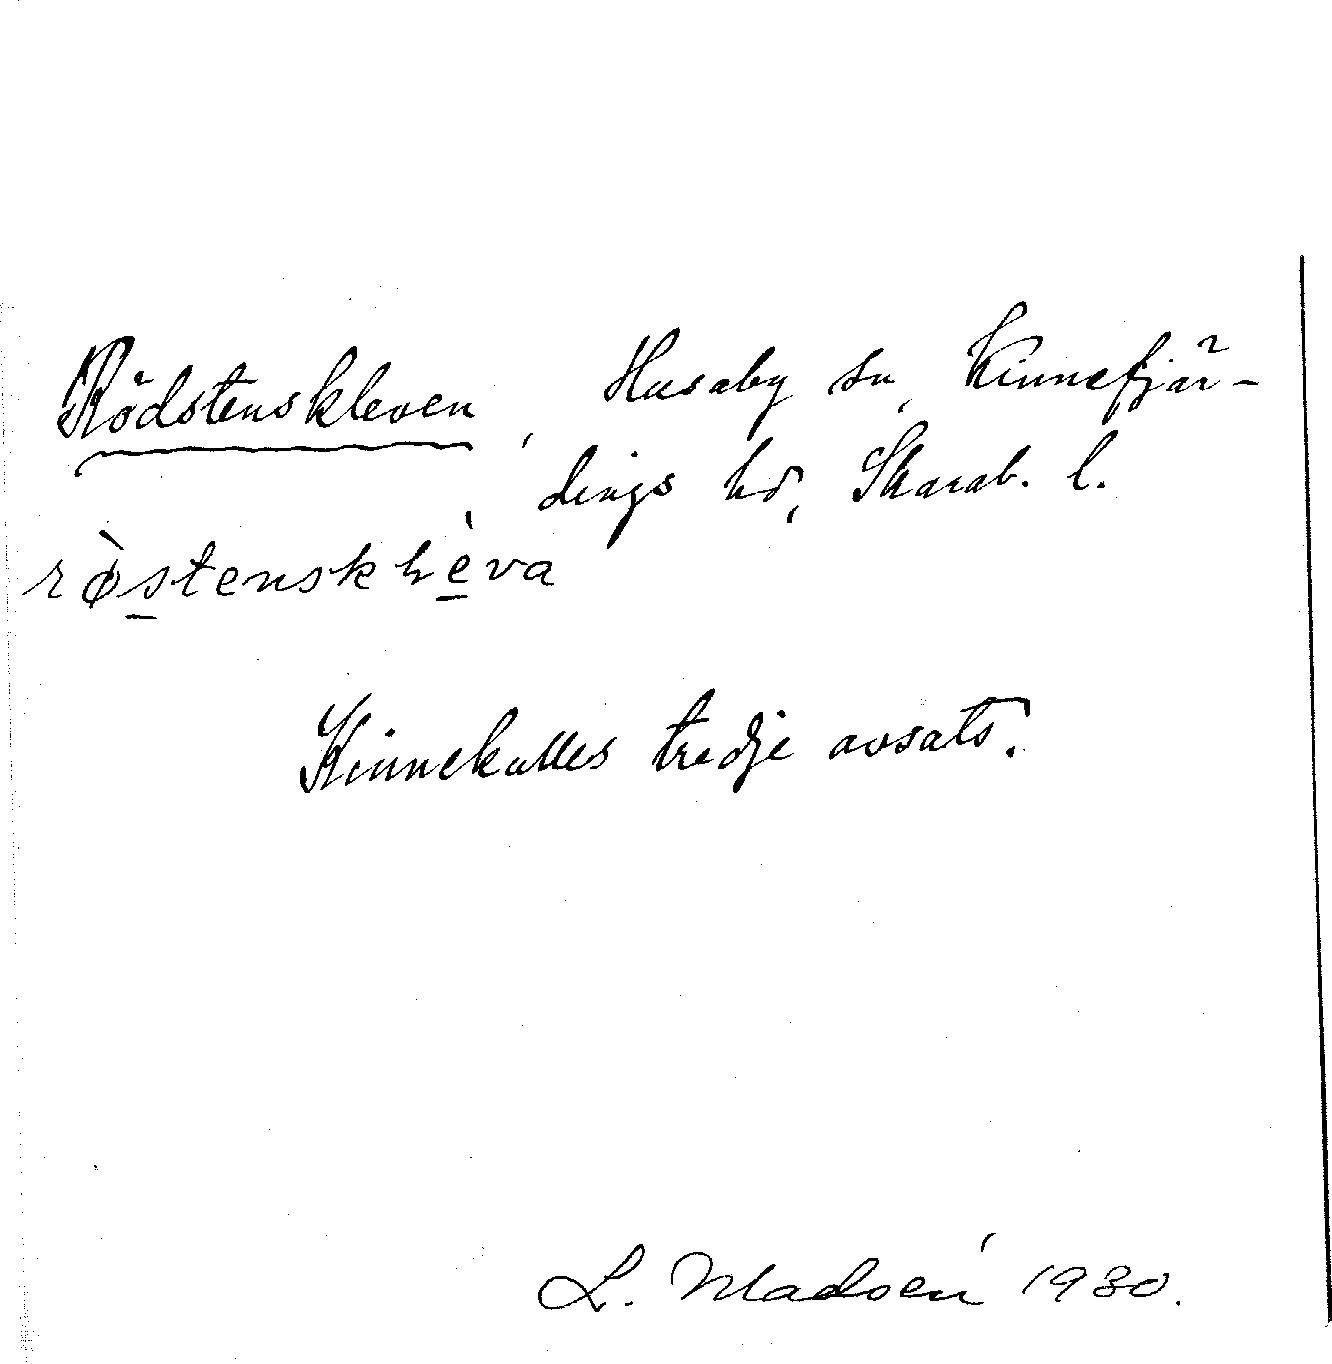 Rödstenskleven, Husaby sn, Kinnefjär-
dings hd, Skarab. l.
Kinnekulles tredje avsats.
L. Madsén 1930.